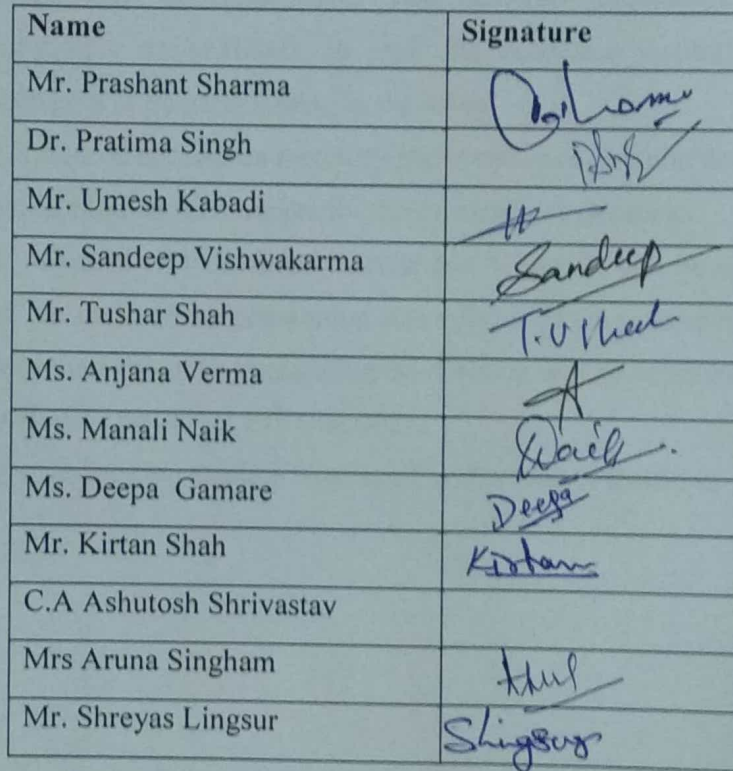 Name Signature
Mr. Prashant Sharma
Dr. Pratima Singh
Mr. Umesh Kabadi
Mr. Sandeep Vishwakarma Sandeep
Mr. Tushar Shah
Ms. Anjana Verma A
Ms. Manali Naik Naik
Ms. Deepa Gamare Deepa
Mr. Kirtan Shah Kirtan
C.A Ashutosh Shrivastav
Mrs Aruna Singham
Mr. Shreyas Lingsur